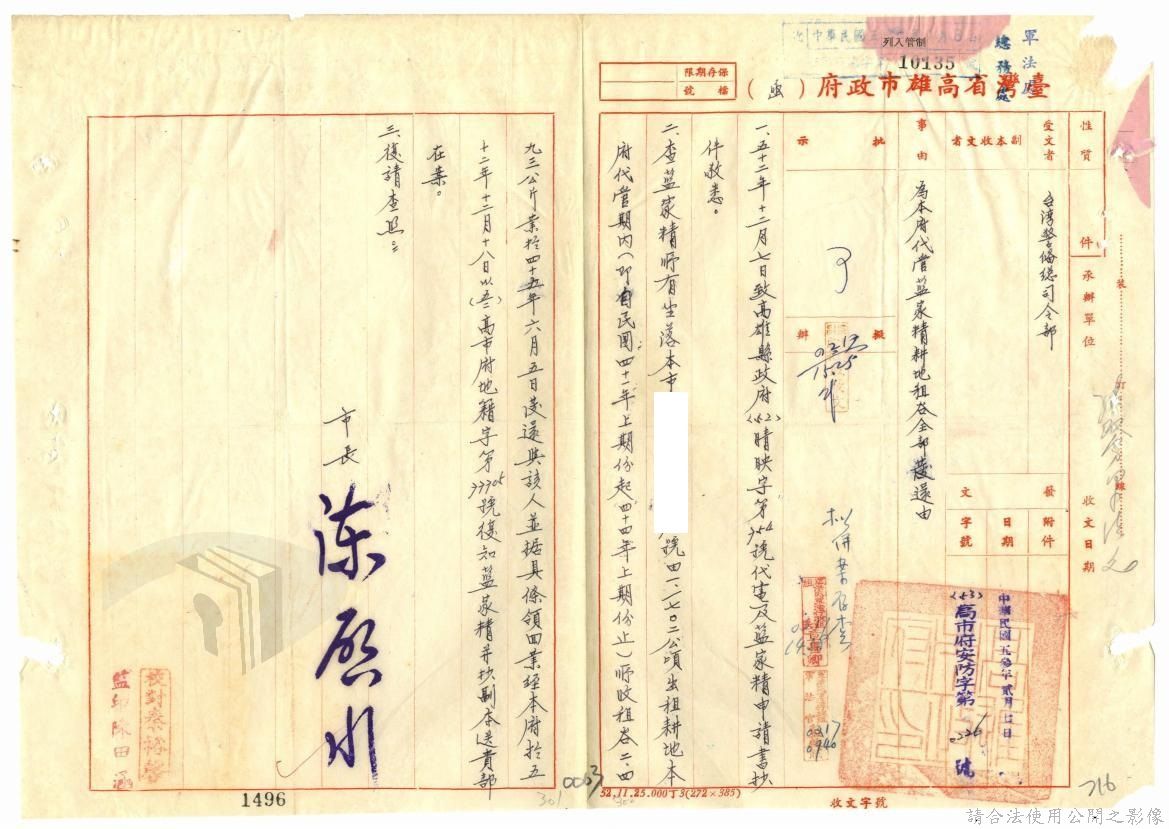 軍法處
總務處
制管入列
10135
臺灣省高雄市政府（函）
保存期限
檔號
性質
件
承辦單位
收文日期
裝
訂
線
受文者
台灣警備總司令部
副本收文者
發文
附件
日期
字號
中華民國五拾叁年貳月七日
(53)高市府安防字第0226號
事由
為本府代管藍家精耕地租谷全部發還由
批示
擬辦
擬併案存查
一、五十二年十二月七日致高雄縣政府(52)晴映字第
號代電及藍家精申請書抄
件敬悉。
二、查藍家精所有坐落本市
號田一.一七〇二公頃出租耕地本
府代管期內(即自民國四十一年上期份起四十四年上期份止)所收租谷二.四
九三公斤業於四十五年六月五日發還與該人並據具條領回業經本府於五
十二年十二月十八日以(五二)高市府地籍字第77705號復知藍家精并抄副本送貴部
在案。
三、復請查照。
市長 陳啟川
校對蔡裕馨
監印陳田涵
0063
301
300
1496
716
52.11.25.000丁3(272×385)
收文字號
請合法使用公開之影像